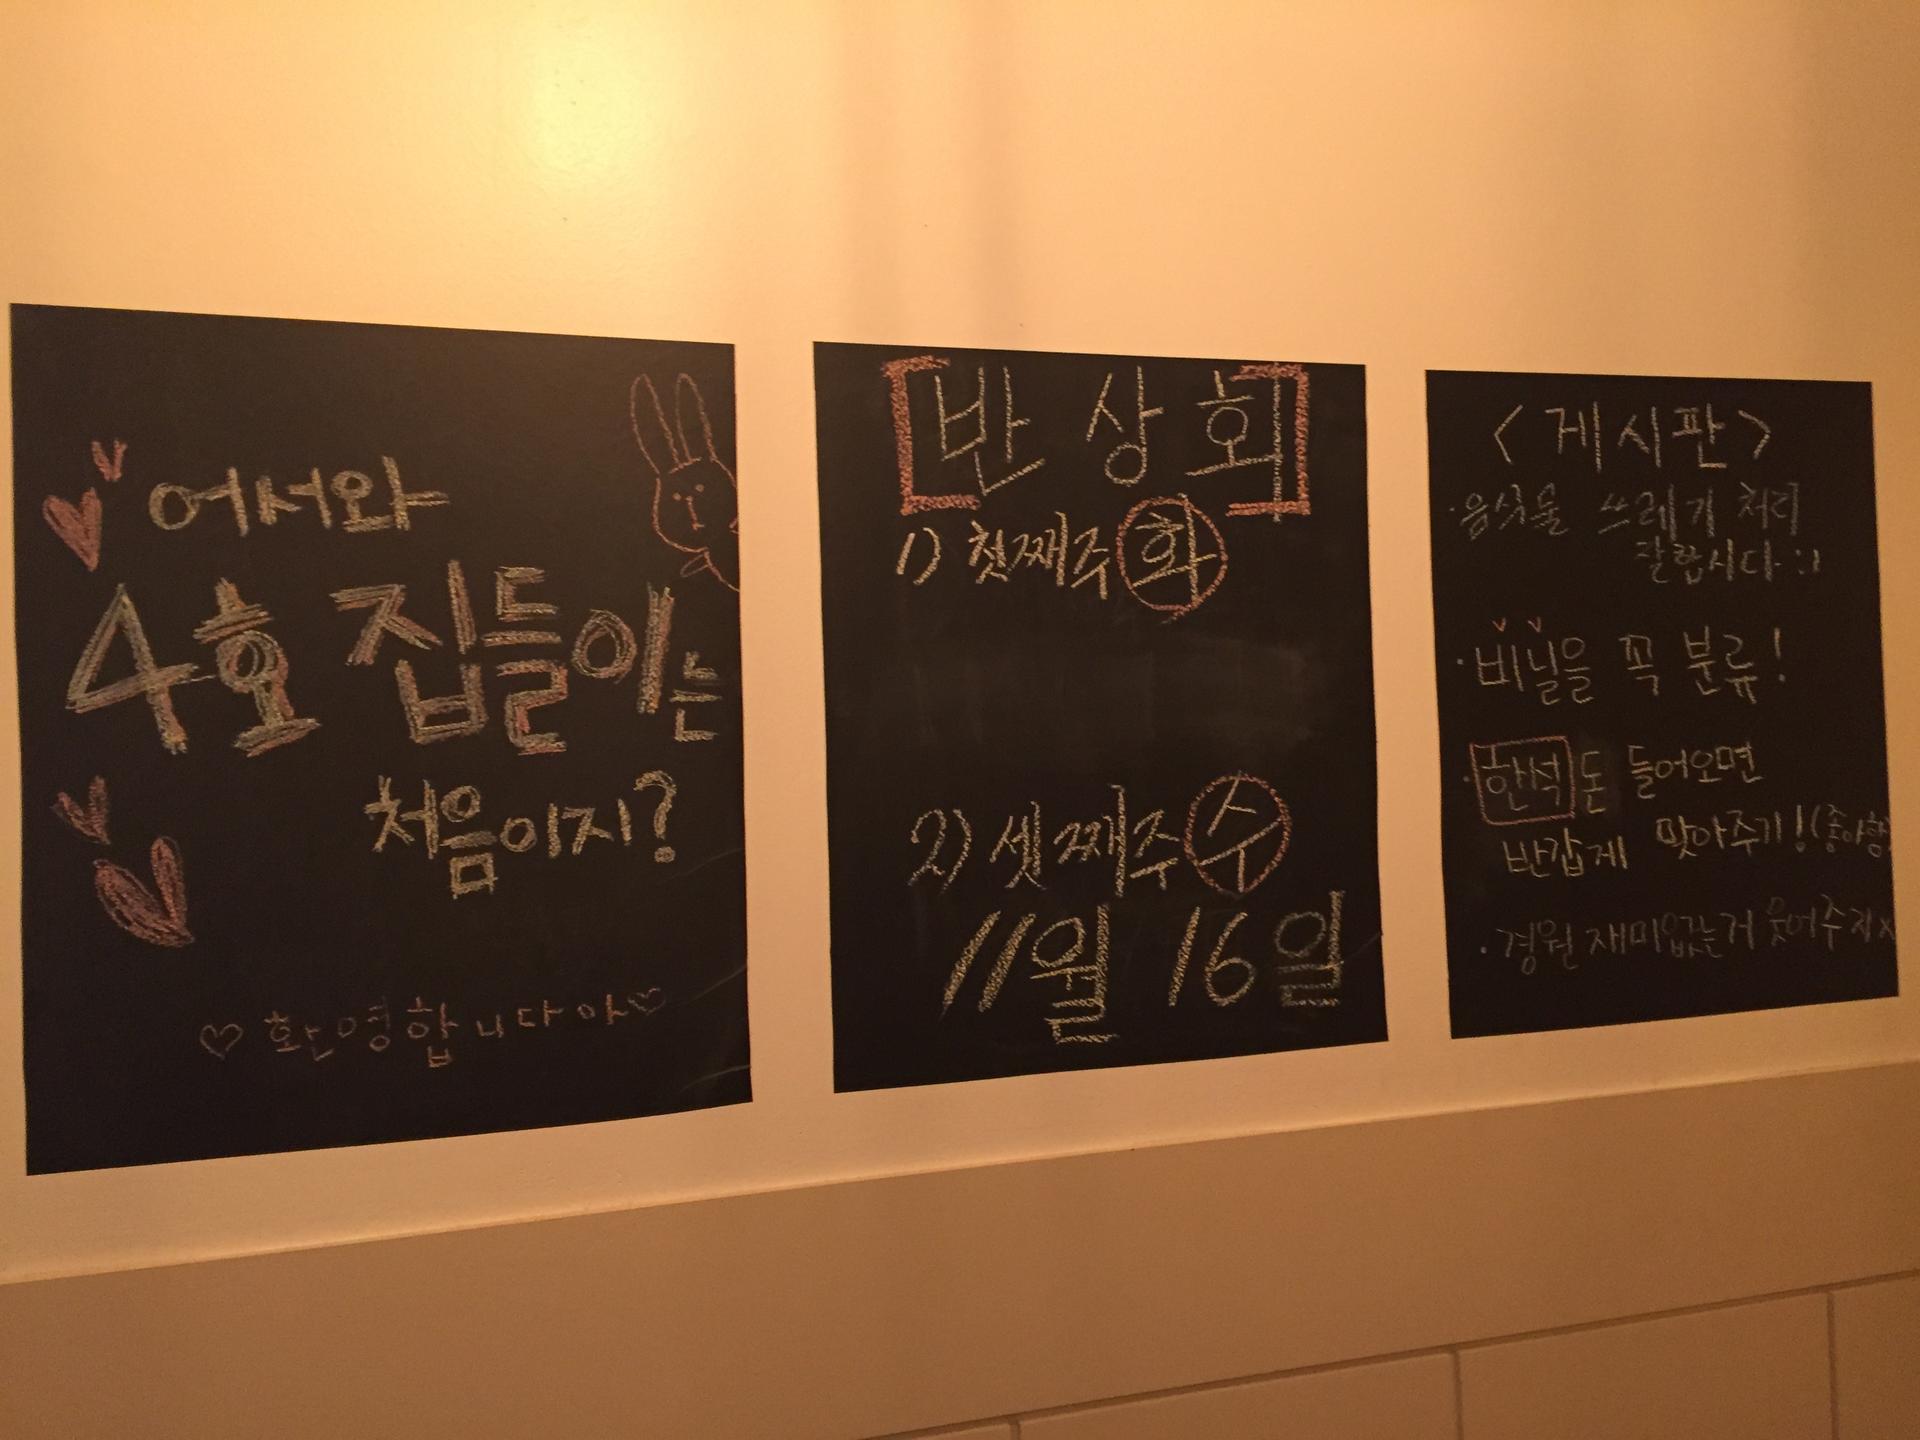 어서와
4호 집들이는
처음이지?
♡ 환영합니다아 ♡
[반상회]
1) 첫째주 화
2) 셋째주 수
11월 16일
<게시판>
· 음식물 쓰레기 처리
잘합시다 :)
· 비닐을 꼭 분류!
· 한석 돈 들어오면
반갑게 맞아주기! (좋아함)
· 경원 재미없는거 웃어주지x